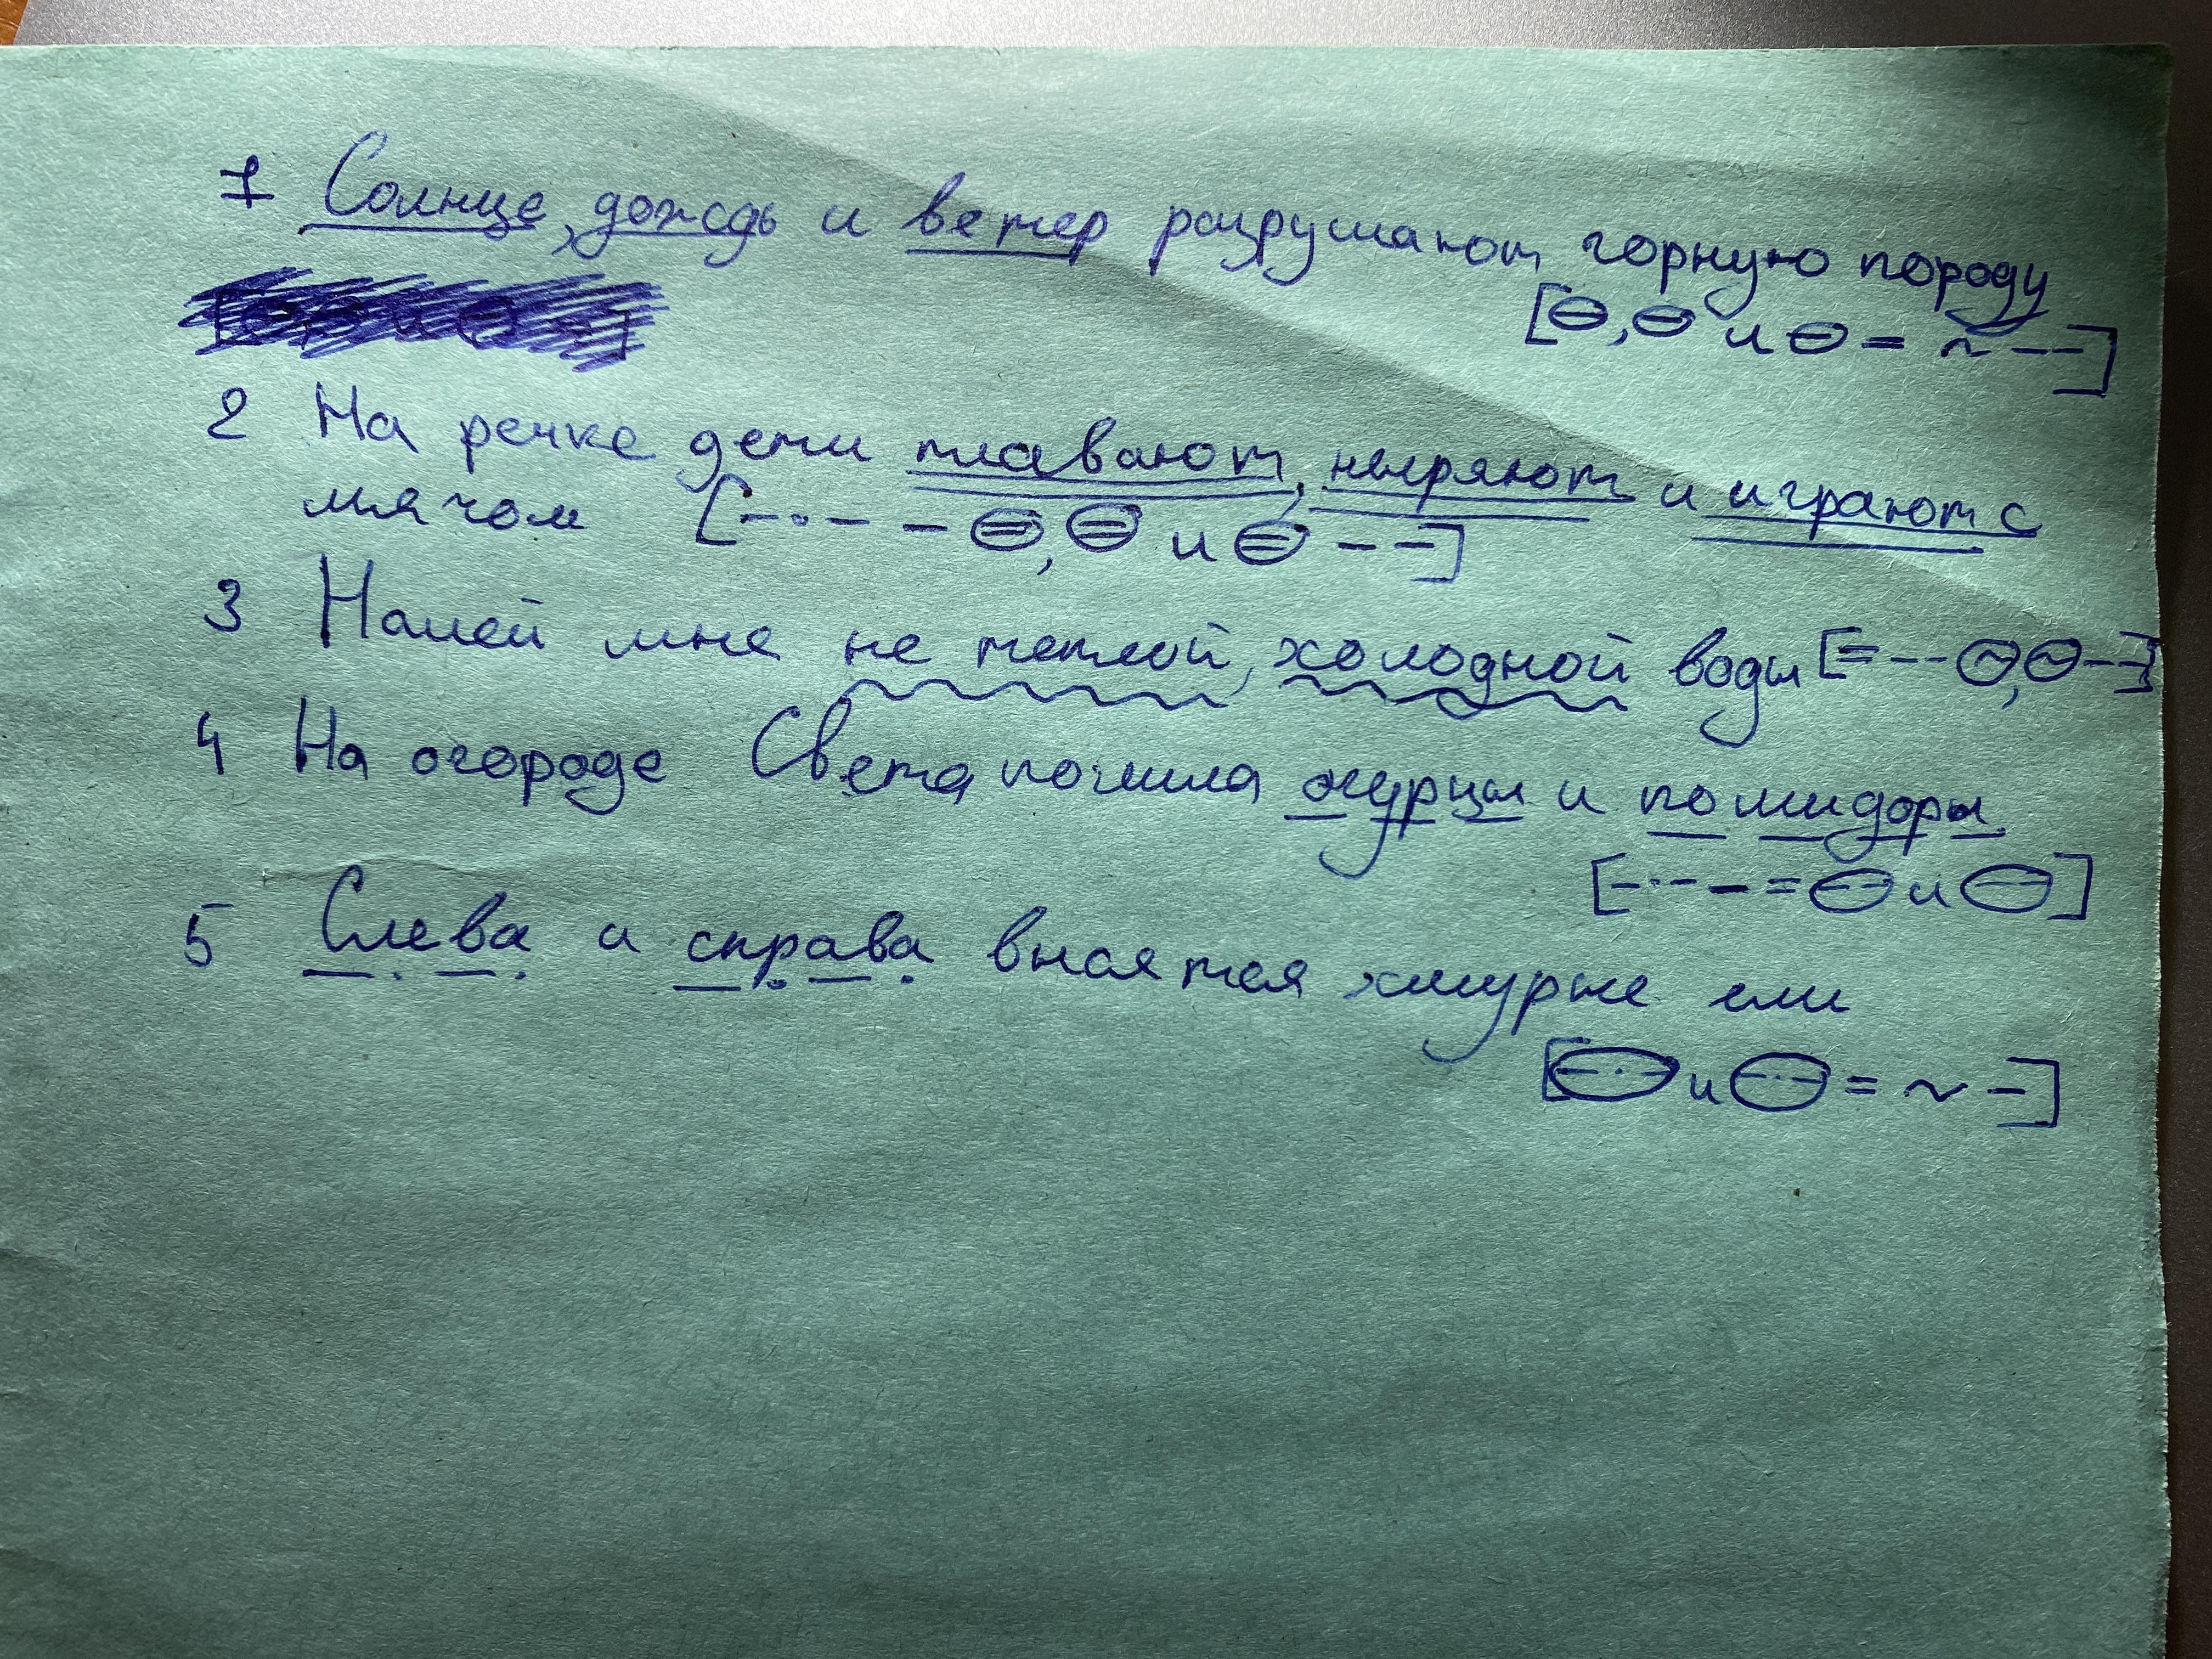 1 Солнце, дождь и ветер разрушают горную породу
[⊖, ⊖ и ⊖ = ~ --]
2 На речке дети плавают, ныряют и играют с
мячом [-·-- - ⊜, ⊜ и ⊜ --]
3 Налей мне не теплой, холодной воды [= -- ~, ~ --]
4 На огороде Света полила огурцы и помидоры
[-·-- - = ⊖ и ⊖]
5 Слева и справа высятся хмурые ели
[-·- и -·- = ~ -]